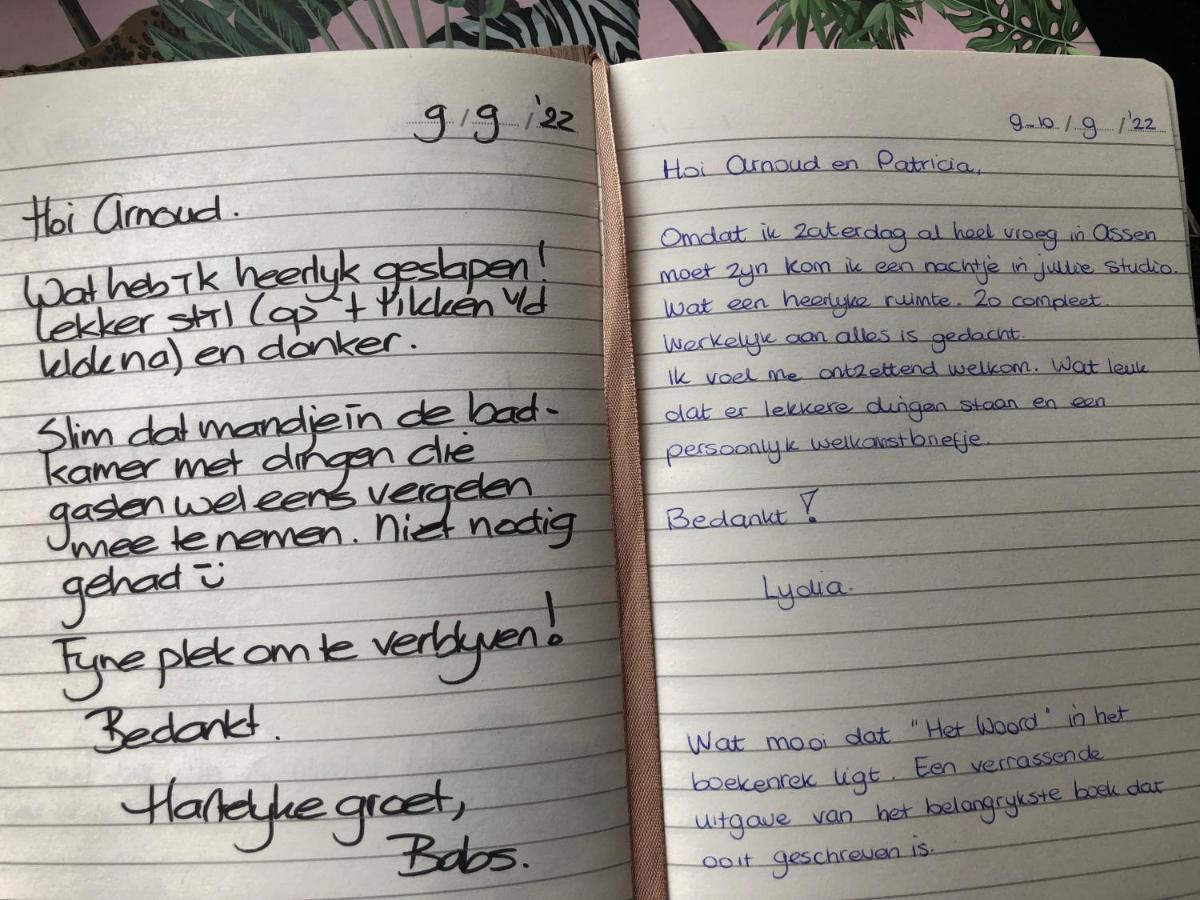 9/9/'22
Hoi Arnoud.
Wat heb ik heerlyk geslapen!
Lekker stil (op 't tikken v/d
klok na) en donker.
Slim dat mandje in de bad-
kamer met dingen die
gasten wel eens vergeten
mee te nemen. Niet nodig
gehad ü
Fyne plek om te verblyven!
Bedankt.
Hartelyke groet,
Babs.
9-10/9/'22
Hoi Arnoud en Patricia,
Omdat ik zaterdag al heel vroeg in Assen
moet zyn kom ik een nachtje in jullie studio.
Wat een heerlyke ruimte. Zo compleet.
Werkelyk aan alles is gedacht.
Ik voel me ontzettend welkom. Wat leuk
dat er lekkere dingen staan en een
persoonlyk welkomstbriefje.
Bedankt!
Lydia.
Wat mooi dat "Het Woord" in het
boekenrek ligt. Een verrassende
uitgave van het belangrykste boek dat
ooit geschreven is.